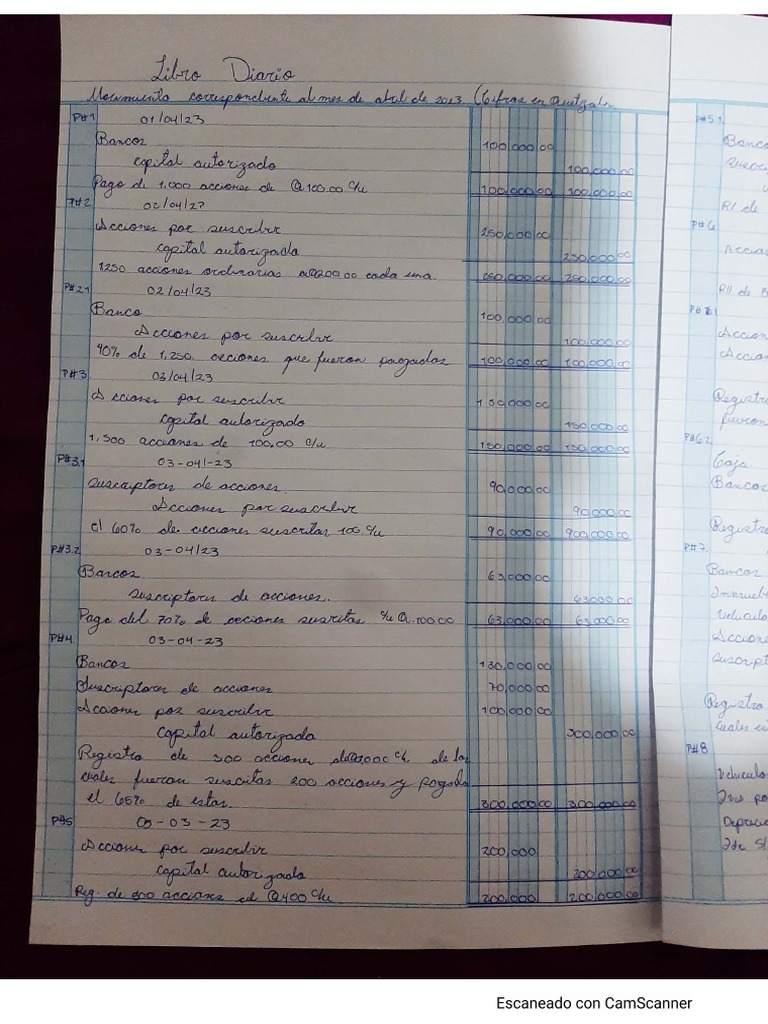 Libro Diario
Movimiento correspondiente al mes de abril de 2023 (Cifras en Quetzales
P#1 01/04/23
Bancos 100,000.00
capital autorizado 100,000.00
Pago de 1,000 acciones de Q100.00 c/u 100,000.00 100,000.00
P#2 02/04/23
Acciones por suscribir 250,000.00
capital autorizado 250,000.00
1250 acciones ordinarias a Q200.00 cada una. 250,000.00 250,000.00
P#2.1 02/04/23
Banco 100,000.00
Acciones por suscribir 100,000.00
40% de 1,250 acciones que fueron pagadas 100,000.00 100,000.00
P#3 03/04/23
Acciones por suscribir 150,000.00
capital autorizado 150,000.00
1,500 acciones de 100,00 c/u 150,000.00 150,000.00
P#3.1 03-04-23
suscriptores de acciones. 90,000.00
Acciones por suscribir 90,000.00
el 60% de acciones suscritas 100 c/u 90,000.00 900,000.00
P#3.2 03-04/23
Bancos 63,000.00
suscriptores de acciones. 63,000.00
Pago del 70% de acciones suscritas c/u Q.100.00 63,000.00 63,000.00
P#4 03-04-23
Bancos 130,000.00
Suscriptores de acciones 70,000.00
Acciones por suscribir 100,000.00
capital autorizado 300,000.00
Registro de 300 acciones de c/u de las
cuales fueron suscritas 200 acciones y pagado
el 65% de estas. 300,000.00 300,000.00
P#5 03-03-23
Acciones por suscribir 200,000
capital autorizado 200,000.00
Reg. de 500 acciones al Q400 c/u 200,000 200,000
P#5.1
Banco
suscri
R/ de
P#6
Accion
R/ de
Accion
Accion
Registro
fueron
P#6.2
Caja
Bancos
Registro
P#7
Bancos
Inmueb
Vehiculo
Accione
suscript
Registro
cuales
P#8
Vehiculo
Depreci
Escaneado con CamScanner